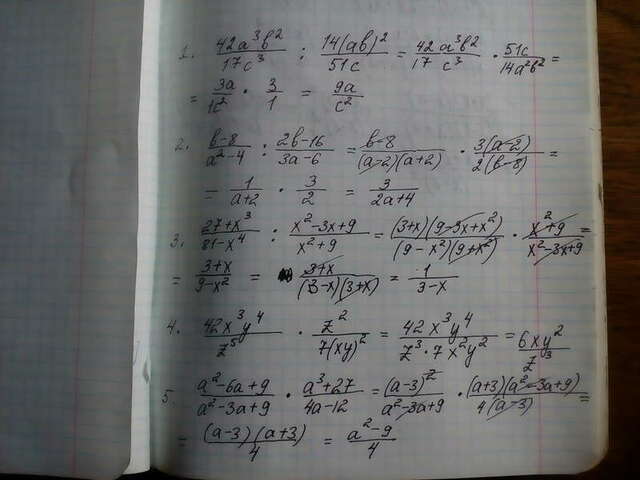 1. 42a³b²/17c³ : 14(ab)²/51c = 42a³b²/17c³ · 51c/14a²b² =
= 3a/1c² · 3/1 = 9a/c²
2. b-8/a²-4 : 2b-16/3a-6 = b-8/(a-2)(a+2) · 3(a-2)/2(b-8) =
= 1/a+2 · 3/2 = 3/2a+4
3. 27+x³/81-x⁴ : x²-3x+9/x²+9 = (3+x)(9-3x+x²)/(9-x²)(9+x²) · x²+9/x²-3x+9 =
= 3+x/9-x² = 3+x/(3-x)(3+x) = 1/3-x
4. 42x³y⁴/z⁵ · z²/7(xy)² = 42x³y⁴/z³·7x²y² = 6xy²/z³
5. a²-6a+9/a²-3a+9 · a³+27/4a-12 = (a-3)²/a²-3a+9 · (a+3)(a²-3a+9)/4(a-3) =
= (a-3)(a+3)/4 = a²-9/4